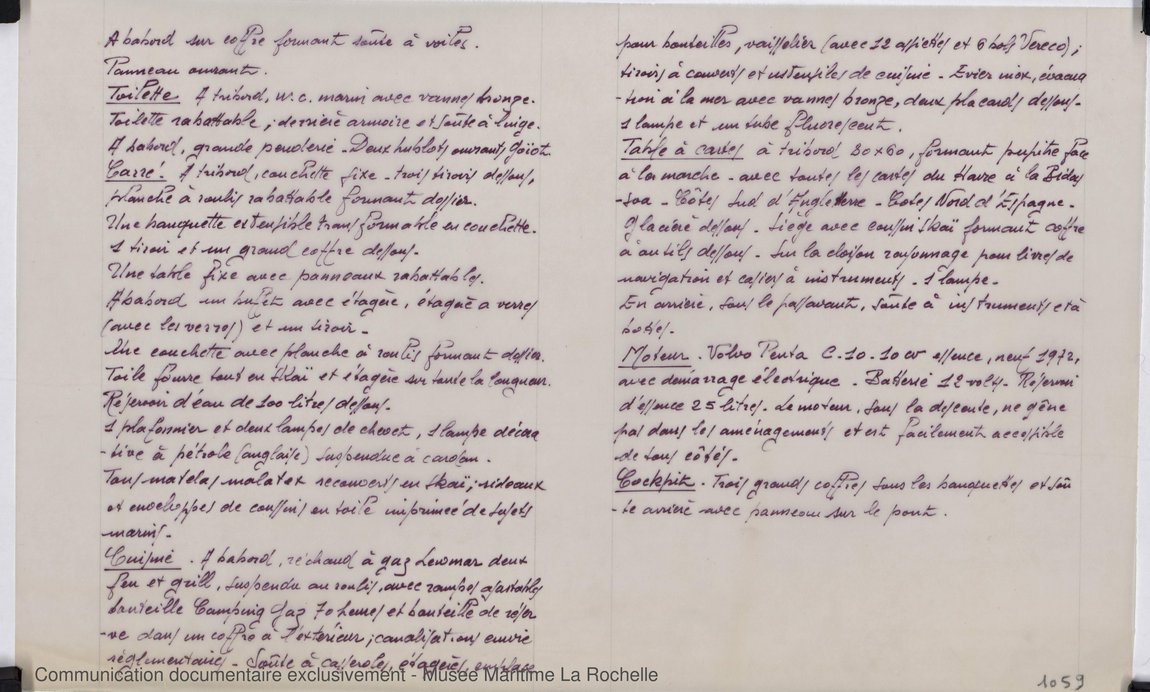 A babord sur coffre formant soûte à voiles.
Panneau ouvrant.
Toilette A tribord, w.c. marin avec vannes bronze.
Toilette rabattable ; derrière armoire et soûte à linge.
A babord, grande penderie. Deux hublots ouvrants Goïot
Carré : A tribord, couchette fixe - trois tiroirs dessous,
planche à roulis rabattable formant dossier.
Une banquette extensible transformable en couchette.
1 tiroir et un grand coffre dessous.
Une table fixe avec panneaux rabattables.
A babord un buffet avec étagère, étagère a verres
(avec les verres) et un tiroir -
Une couchette avec planche à roulis formant dossier.
Toile fourre tout en Skaï et étagère sur toute la longueur.
Réservoir d'eau de 100 litres dessous.
1 plafonnier et deux lampes de chevet, 1 lampe décora
-tive à pétrole (anglaise) suspendue à cardan.
Tous matelas molatex recouverts en Skaï ; rideaux
et enveloppes de coussins en toile imprimée de sujets
marins -
Cuisine. A babord, réchaud à gaz Lewmar deux
feu et grill, suspendu au roulis, avec rampes ajustables
bouteille Camping Gaz 70 heures et bouteille de réser
-ve dans un coffre à l'extérieur ; canalisations cuivre
réglementaires - Soûte à casseroles, étagères, emplace
Communication documentaire exclusivement - Musée Maritime La Rochelle
pour bouteilles, vaisselier (avec 12 assiettes et 6 bols Vereco) ;
tiroirs à couverts et ustensiles de cuisine - Evier inox, évacua
-tion à la mer avec vannes bronze, deux placards dessous -
1 lampe et un tube fluorescent.
Table à cartes à tribord 80x60, formant pupitre face
à la marche - avec toutes les cartes du Havre à la Bidas
-soa - Côtes Sud d'Angleterre - Cotes Nord d'Espagne -
Glacière dessous - Siège avec coussin Skaï formant coffre
à outils dessous - Sur la cloison rayonnage pour livres de
navigation et casiers à instruments - 1 lampe -
En arrière, sous le passavant, soûte à instruments et à
bottes -
Moteur. Volvo Penta C.10. 10 cv essence, neuf 1972,
avec démarrage électrique - Batterie 12 volts - Réservoir
d'essence 25 litres - Le moteur, sous la descente, ne gêne
pas dans les aménagements et est facilement accessible
de tous côtés -
Cockpit. Trois grands coffres sous les banquettes et soû
-te arrière avec panneau sur le pont.
1059